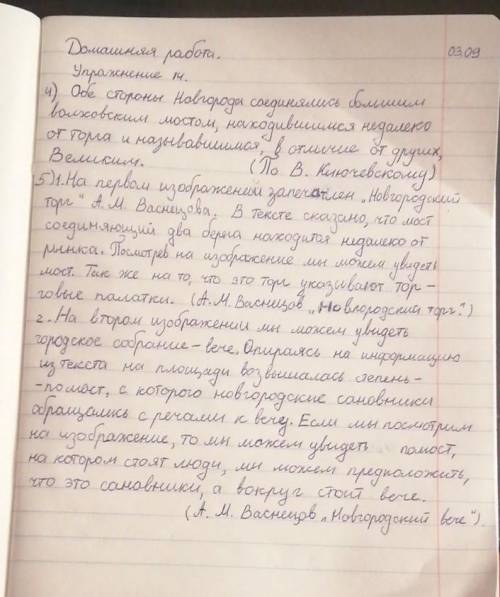 Домашняя работа. 03.09
Упражнение 14.
4) Обе стороны Новгорода соединялись большим
волховским мостом, находившимся недалеко
от торга и называвшимся, в отличие от других,
Великим. (По В. Ключевскому)
5)1. На первом изображении запечатлен „Новгородский
торг" А. М. Васнецова. В тексте сказано, что мост
соединяющий два берега находится недалеко от
рынка. Посмотрев на изображение мы можем увидеть
мост. Так же на то, что это торг указывают тор-
говые палатки. (А. М. Васнецов „Новгородский торг".)
2. На втором изображении мы можем увидеть
городское собрание - вече. Опираясь на информацию
из текста на площади возвышалась степень-
-помост, с которого новгородские сановники
обращались с речами к вечу. Если мы посмотрим
на изображение, то мы можем увидеть помост,
на котором стоят люди, мы можем предположить,
что это сановники, а вокруг стоит вече.
(А. М. Васнецов „Новгородский вече").